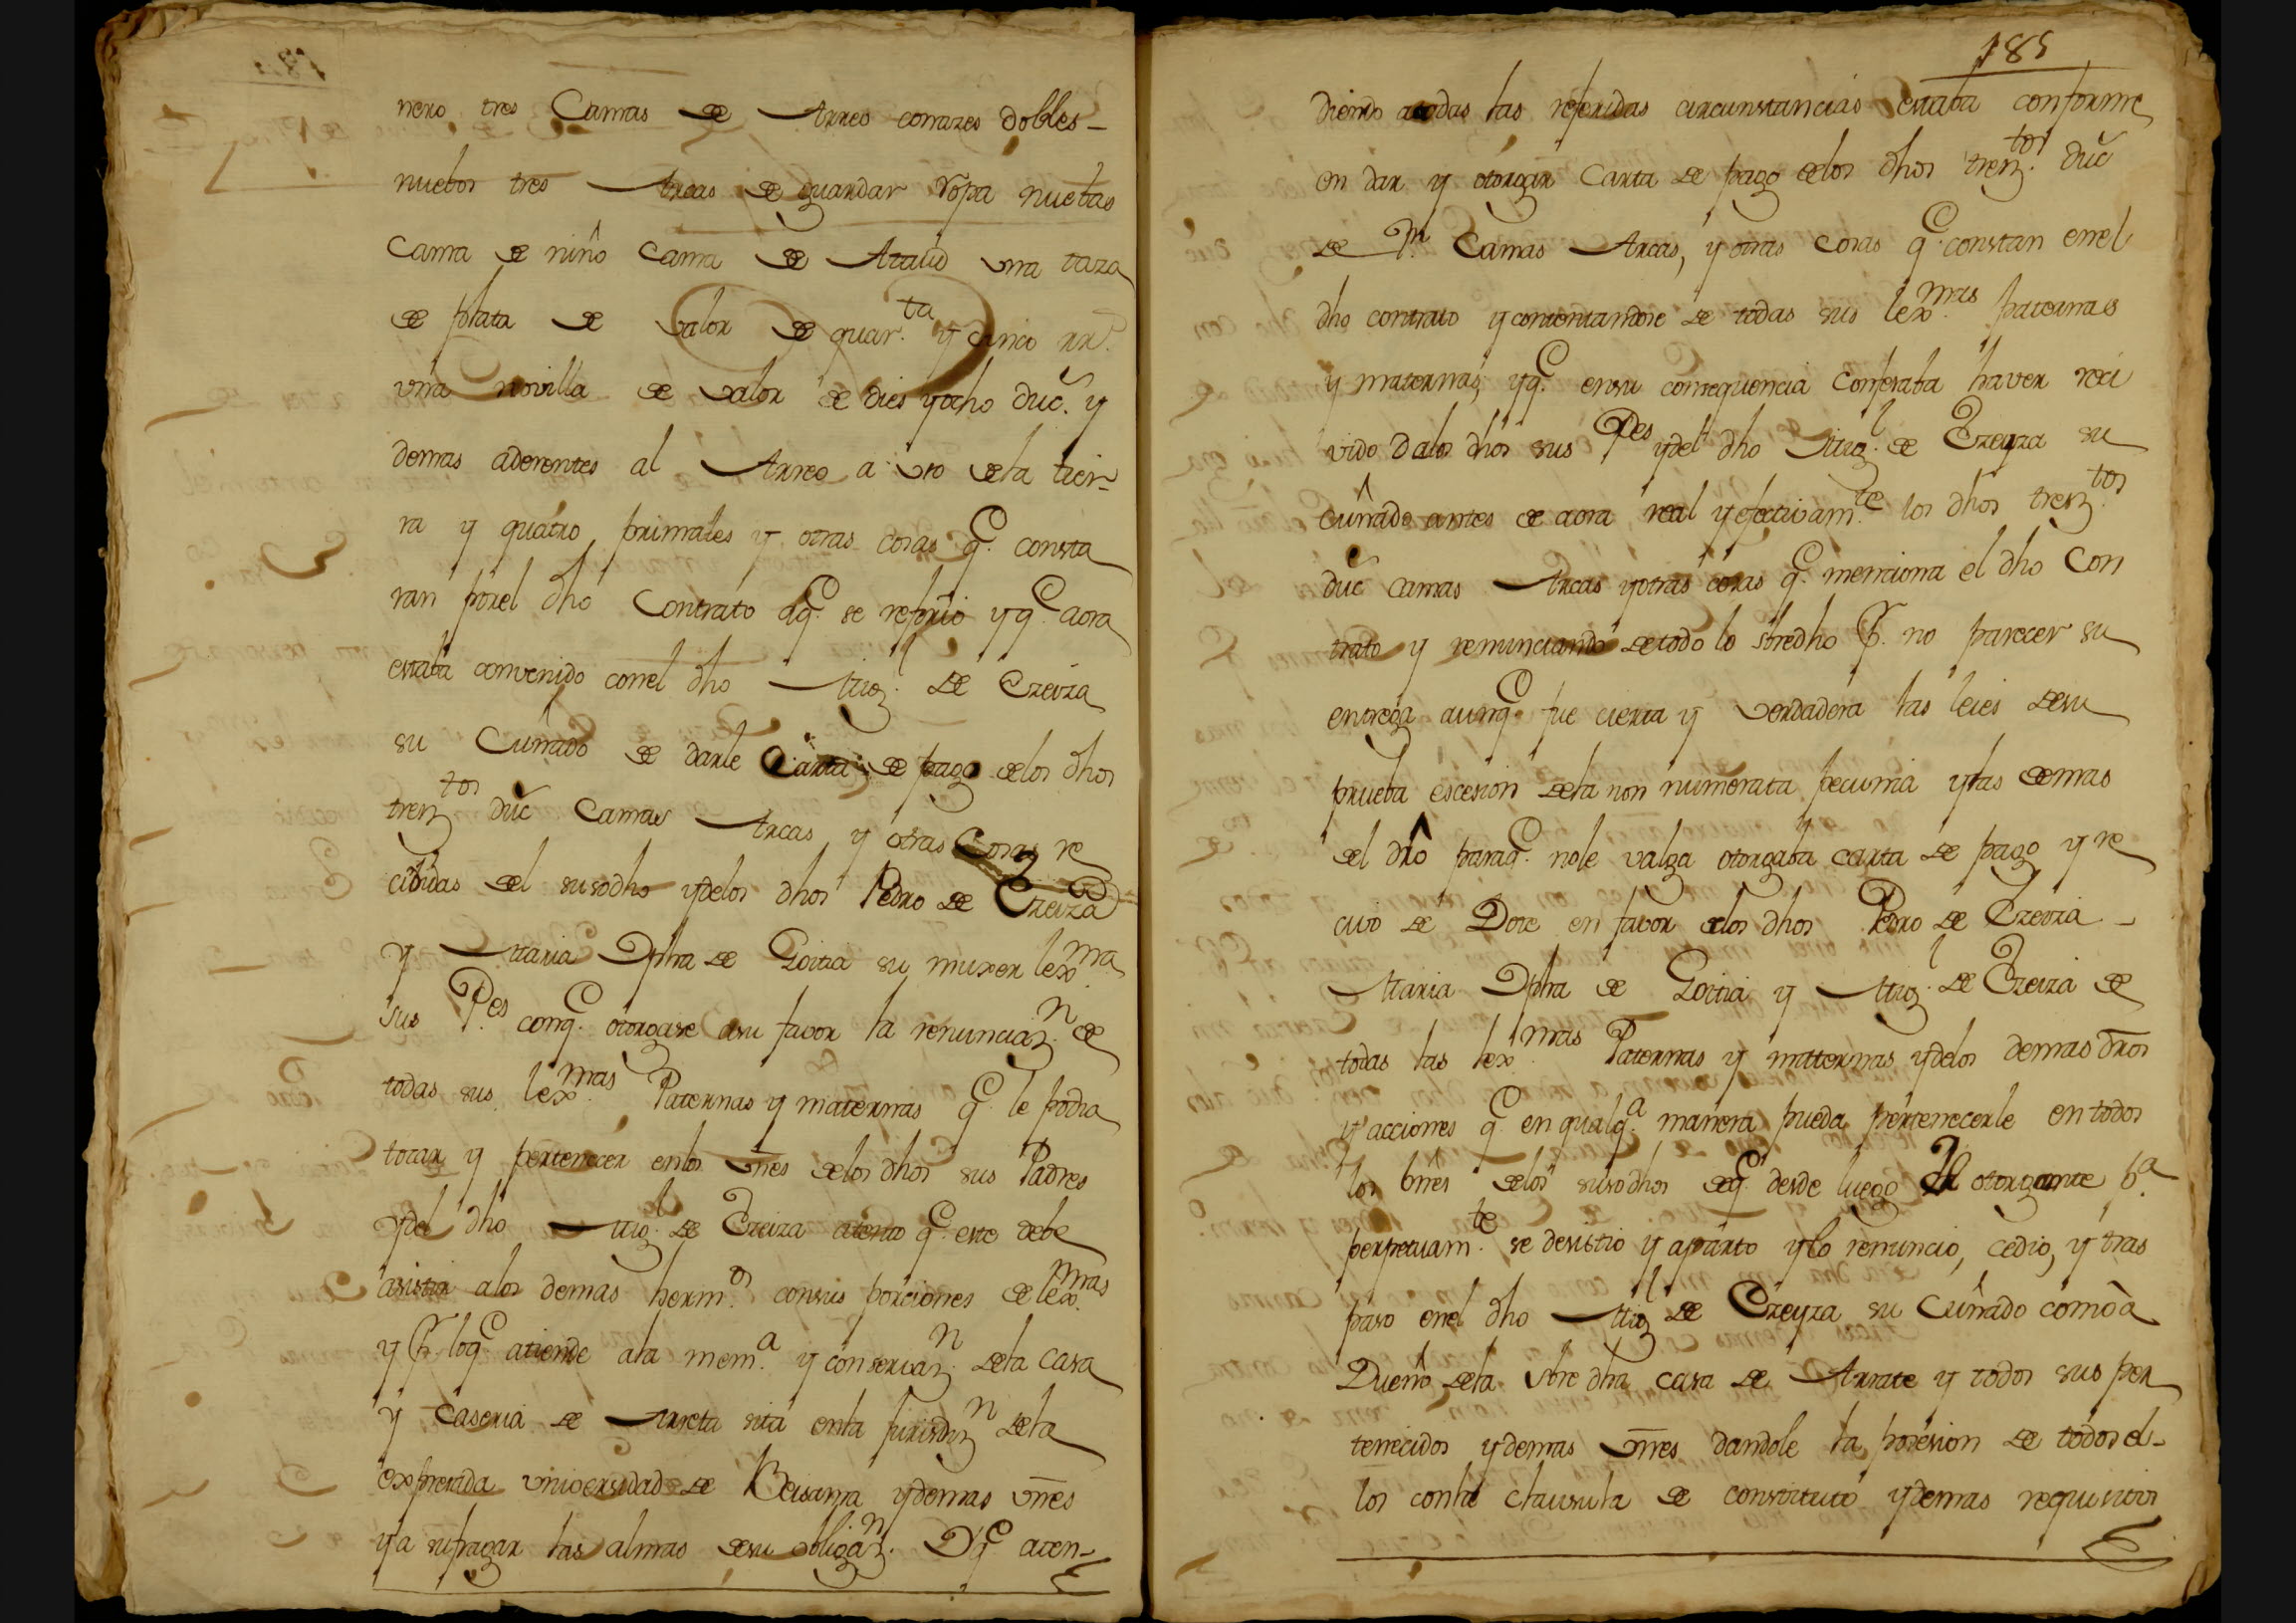 nero tres Camas de Arreo comares dobles-
nuebos tres Arcas de guardar ropa nuebas
Cama de niño Cama de Ataud una taza
de plata de valor de quar.ta y cinco rr.s
una novilla de valor de dies yocho duc.s y
demas aderentes al Arreo a uso dela tier-
ra y quatro primales y otras cosas q.e consta
ran porel dho Contrato aq.e se refirio yq.e aora
estaba convenido conel dho Mig.l de Ezeiza
su Cuñado de darle Carta de pago delos dhos
trez.tos duc.s Camas Arcas y otras Cosas re
cibidas del susodho ydelos dhos Pedro de Ezeiza
y Maria Ipha de Goitia su muxer lex.ma
sus P.es conq.e otorgase asu favor la renunciaz.n de
todas sus lex.mas Paternas y maternas q.e le podia
tocar y pertenecer enlos vnes delos dhos sus Padres
ydel dho Mig.l de Ezeiza atento q.e este debe
asistir alos demas herm.os consus porciones de lex.mas
y P.r loq.e atiende ala mem.a y conservaz.n dela casa
y caseria de Arreta sita enla jurisdiz.n dela
expresada universidad de Beisama ydemas vnes
ya sufragar las almas desu obligaz.n Yq.e aten-
185
diendo atodas las referidas circunstancias estaba conforme
en dar y otorgar Carta de pago delos dhos trez.tos duc.s
de p.l Camas Arcas, y otras cosas q.e constan enel
dho contrato ycontentandose de todas sus lex.mas paternas
y maternas, yq.e ensu consequencia Confesaba haver reci
vido Dalos dhos sus P.es ydel dho Mig.l de Ezeyza su
cuñado antes de aora real yefectivam.te los dhos trez.tos
duc.s camas Arcas yotras cosas q.e menciona el dho Con
trato y renunciando detodo lo sbredho P.r no parecer su
entrega aunq.e fue cierta y verdadera las leies desu
prueba escesion dela non numerata pecunia ylas demas
del dro paraq.e nole valga otorgaba carta de pago y re
civo de Dote en favor delos dhos Pedro de Ezeiza -
Maria Ipha de Goitia y Mig.l de Ezeiza de
todas las lex.mas Paternas y matternas ydelos demas dros
y acciones q.e en qualq.a manera pueda pertenecerle en todos
los bnes delos susodhos deq.e desde luego el otorgante b.a
perpetuam.te se desistio y aparto ylo renuncio, cedio, y tras
paso enel dho Mig.l de Ezeyza su Cuñado comoà
Dueño dela sbre dha casa de Arrate y todos sus per
tenecidos ydemas vnes dandole la posesion de todos el-
los conla clausula de constituto ydemas requisitos